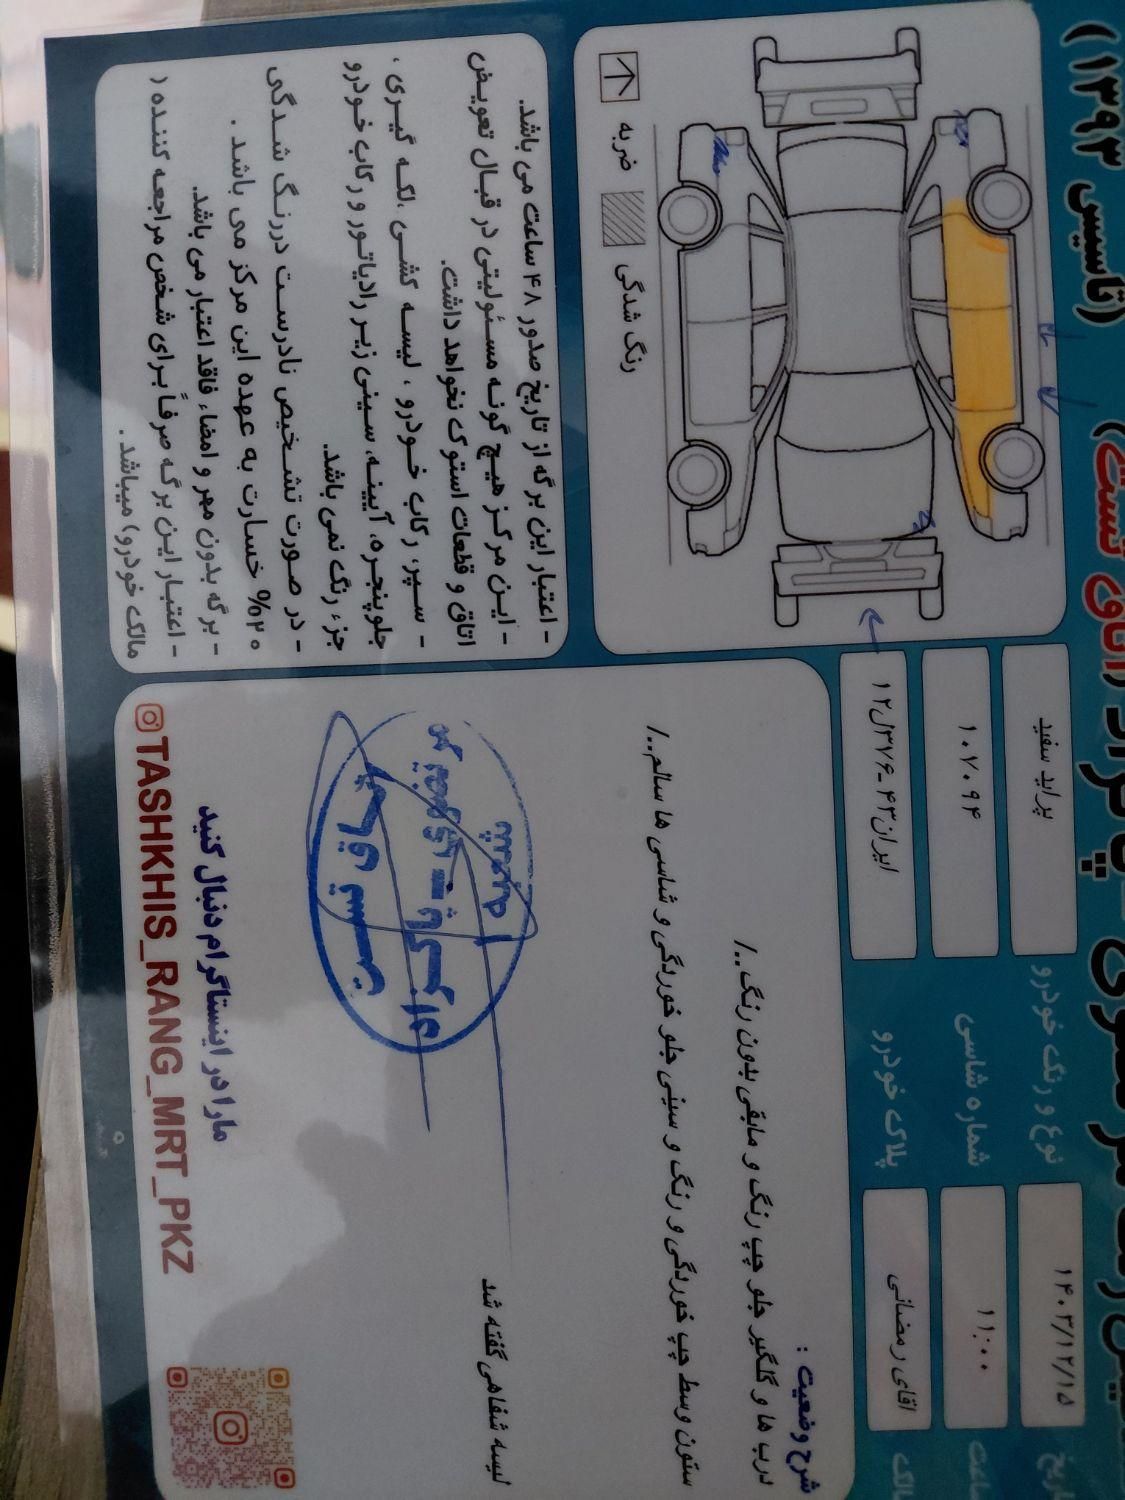 (تاسیس ۱۳۹۳)
نوع و رنگ خودرو
پراید سفید
شماره شاسی
۱۰۷۰۹۴
پلاک خودرو
ایران۴۳-۳۷۶ل۱۲
۱۴۰۳/۱۲/۱۵
۱۱:۰۰
اقای رمضانی
ضربه
رنگ شدگی
شرح وضعیت :
درب ها و گلگیر جلو چپ رنگ و مابقی بدون رنگ../
ستون وسط چپ خوردگی و رنگ و سینی جلو خوردگی و شاسی ها سالم../
لیسه شفاهی گفته شد
- اعتبار این برگه از تاریخ صدور ۴۸ ساعت می باشد.
- این مرکز هیچ گونه مسئولیتی در قبال تعویض
اتاق و قطعات استوک نخواهد داشت.
- سپر، رکاب خودرو ، لیسه کشی ،لکه گیری ،
جلوپنجره، آیینه، سینی زیر رادیاتور و رکاب خودرو
جزء رنگ نمی باشد.
- در صورت تشخیص نادرست دررنگ شدگی
۲۰% خسارت به عهده این مرکز می باشد .
- برگه بدون مهر و امضاء فاقد اعتبار می باشد.
- اعتبار این برگه صرفاً برای شخص مراجعه کننده (
مالک خودرو) میباشد .
ما را در اینستاگرام دنبال کنید
TASHKHIS_RANG_MRT_PKZ